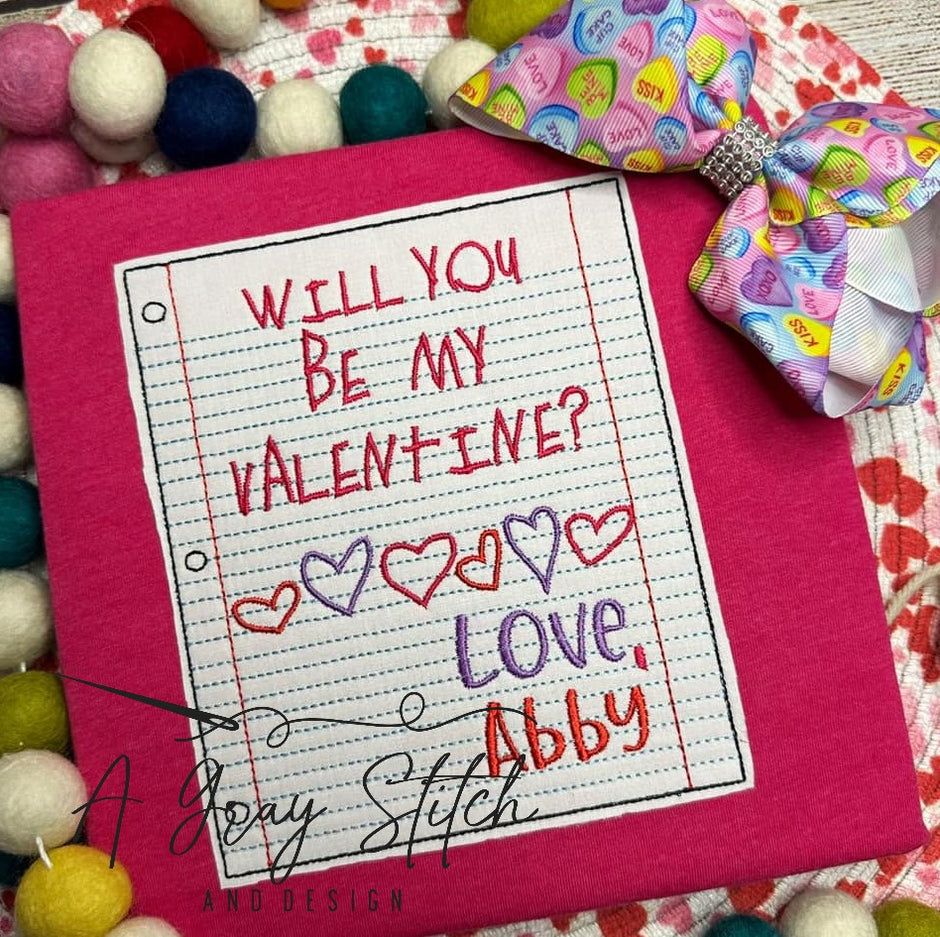 WILL YOU
BE MY
VALENTINE?
LOVE,
Abby
A Gray Stitch
AND DESIGN
LOVE
KISS
LOVE
KISS
LOVE
KISS
KISS